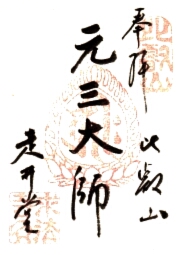 奉拝 比叡山
元三大師
走井堂